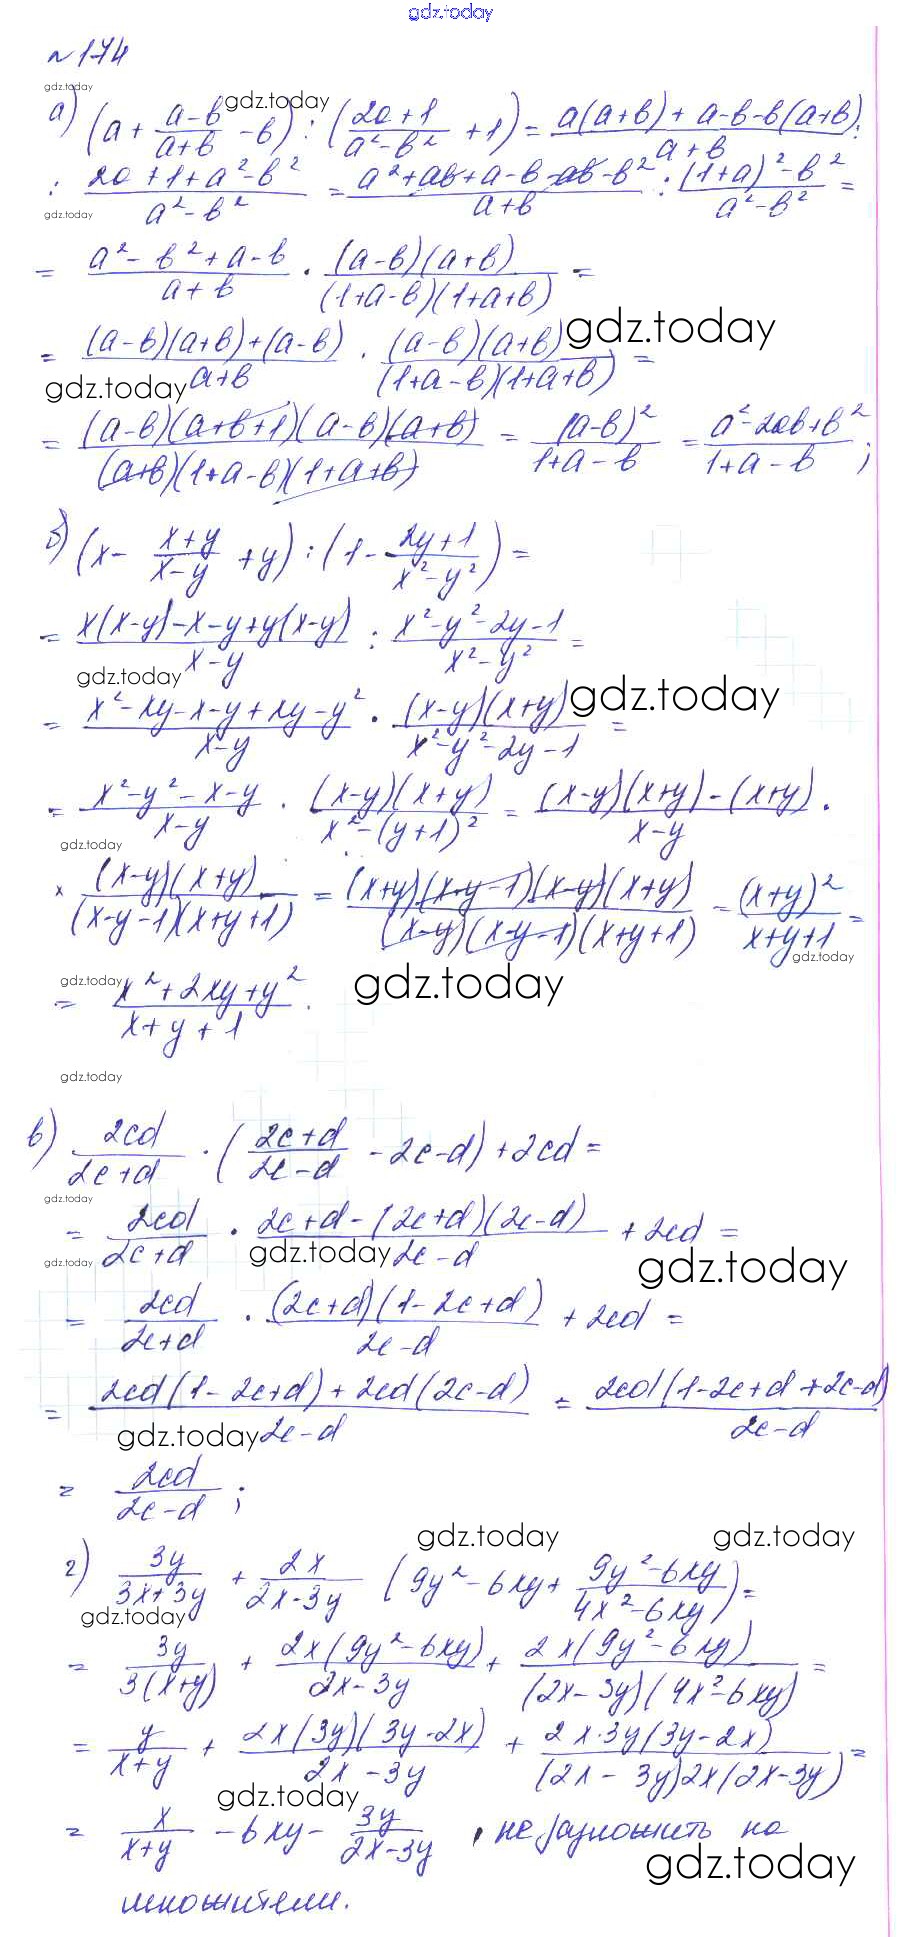 gdz.today
№ 174
gdz.today
а) (a + (a-b)/(a+b) - b) : ((2a+1)/(a²-b²) + 1) = (a(a+b) + a-b-b(a+b))/(a+b) :
gdz.today
: (2a+1+a²-b²)/(a²-b²) = (a²+ab+a-b-ab-b²)/(a+b) : ((1+a)²-b²)/(a²-b²) =
gdz.today
= (a²-b²+a-b)/(a+b) · ((a-b)(a+b))/((1+a-b)(1+a+b)) =
gdz.today
= ((a-b)(a+b)+(a-b))/(a+b) · ((a-b)(a+b))/((1+a-b)(1+a+b)) =
gdz.today
= ((a-b)(a+b+1)(a-b)(a+b))/((a+b)(1+a-b)(1+a+b)) = (a-b)²/(1+a-b) = (a²-2ab+b²)/(1+a-b) ;
б) (x - (x+y)/(x-y) + y) : (1 - (2y+1)/(x²-y²)) =
= (x(x-y)-x-y+y(x-y))/(x-y) : (x²-y²-2y-1)/(x²-y²) =
gdz.today
gdz.today
= (x²-xy-x-y+xy-y²)/(x-y) · ((x-y)(x+y))/(x²-y²-2y-1) =
= (x²-y²-x-y)/(x-y) · ((x-y)(x+y))/(x²-(y+1)²) = ((x-y)(x+y)-(x+y))/(x-y) ·
gdz.today
× ((x-y)(x+y))/((x-y-1)(x+y+1)) = ((x+y)(x-y-1)(x-y)(x+y))/((x-y)(x-y-1)(x+y+1)) = (x+y)²/(x+y+1) =
gdz.today
gdz.today
gdz.today
= (x²+2xy+y²)/(x+y+1) .
gdz.today
в) 2cd/(2c+d) · ((2c+d)/(2c-d) - 2c-d) + 2cd =
gdz.today
= 2cd/(2c+d) · (2c+d-(2c+d)(2c-d))/(2c-d) + 2cd =
gdz.today
gdz.today
gdz.today
= 2cd/(2c+d) · ((2c+d)(1-2c+d))/(2c-d) + 2cd =
= (2cd(1-2c+d)+2cd(2c-d))/(2c-d) = (2cd(1-2c+d+2c-d))/(2c-d)
gdz.today
= 2cd/(2c-d) ;
gdz.today
gdz.today
г) 3y/(3x+3y) + 2x/(2x-3y) (9y²-6xy+ (9y²-6xy)/(4x²-6xy)) =
gdz.today
= 3y/(3(x+y)) + (2x(9y²-6xy))/(2x-3y) + (2x(9y²-6xy))/((2x-3y)(4x²-6xy)) =
= y/(x+y) + (2x(3y)(3y-2x))/(2x-3y) + (2x·3y(3y-2x))/((2x-3y)2x(2x-3y)) =
gdz.today
= x/(x+y) - 6xy - 3y/(2x-3y) , не разложить на
gdz.today
множители.